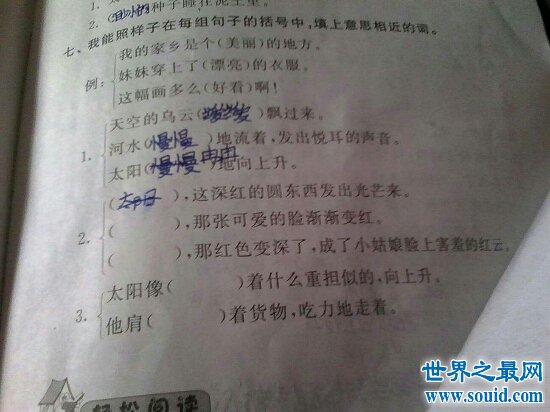 2. (种子睡在泥土里。
七、我能照样子在每组句子的括号中,填上意思相近的词。
例:
我的家乡是个(美丽)的地方。
妹妹穿上了(漂亮)的衣服。
这幅画多么(好看)啊!
1.
天空的乌云( )飘过来。
河水(慢慢)地流着,发出悦耳的声音。
太阳(慢慢冉冉)地向上升。
2.
(太阳),这深红的圆东西发出光芒来。
( ),那张可爱的脸渐渐变红。
( ),那红色变深了,成了小姑娘脸上害羞的红云。
3.
太阳像( )着什么重担似的,向上升。
他肩( )着货物,吃力地走着。
轻松阅读
世界之最网
www.souid.com